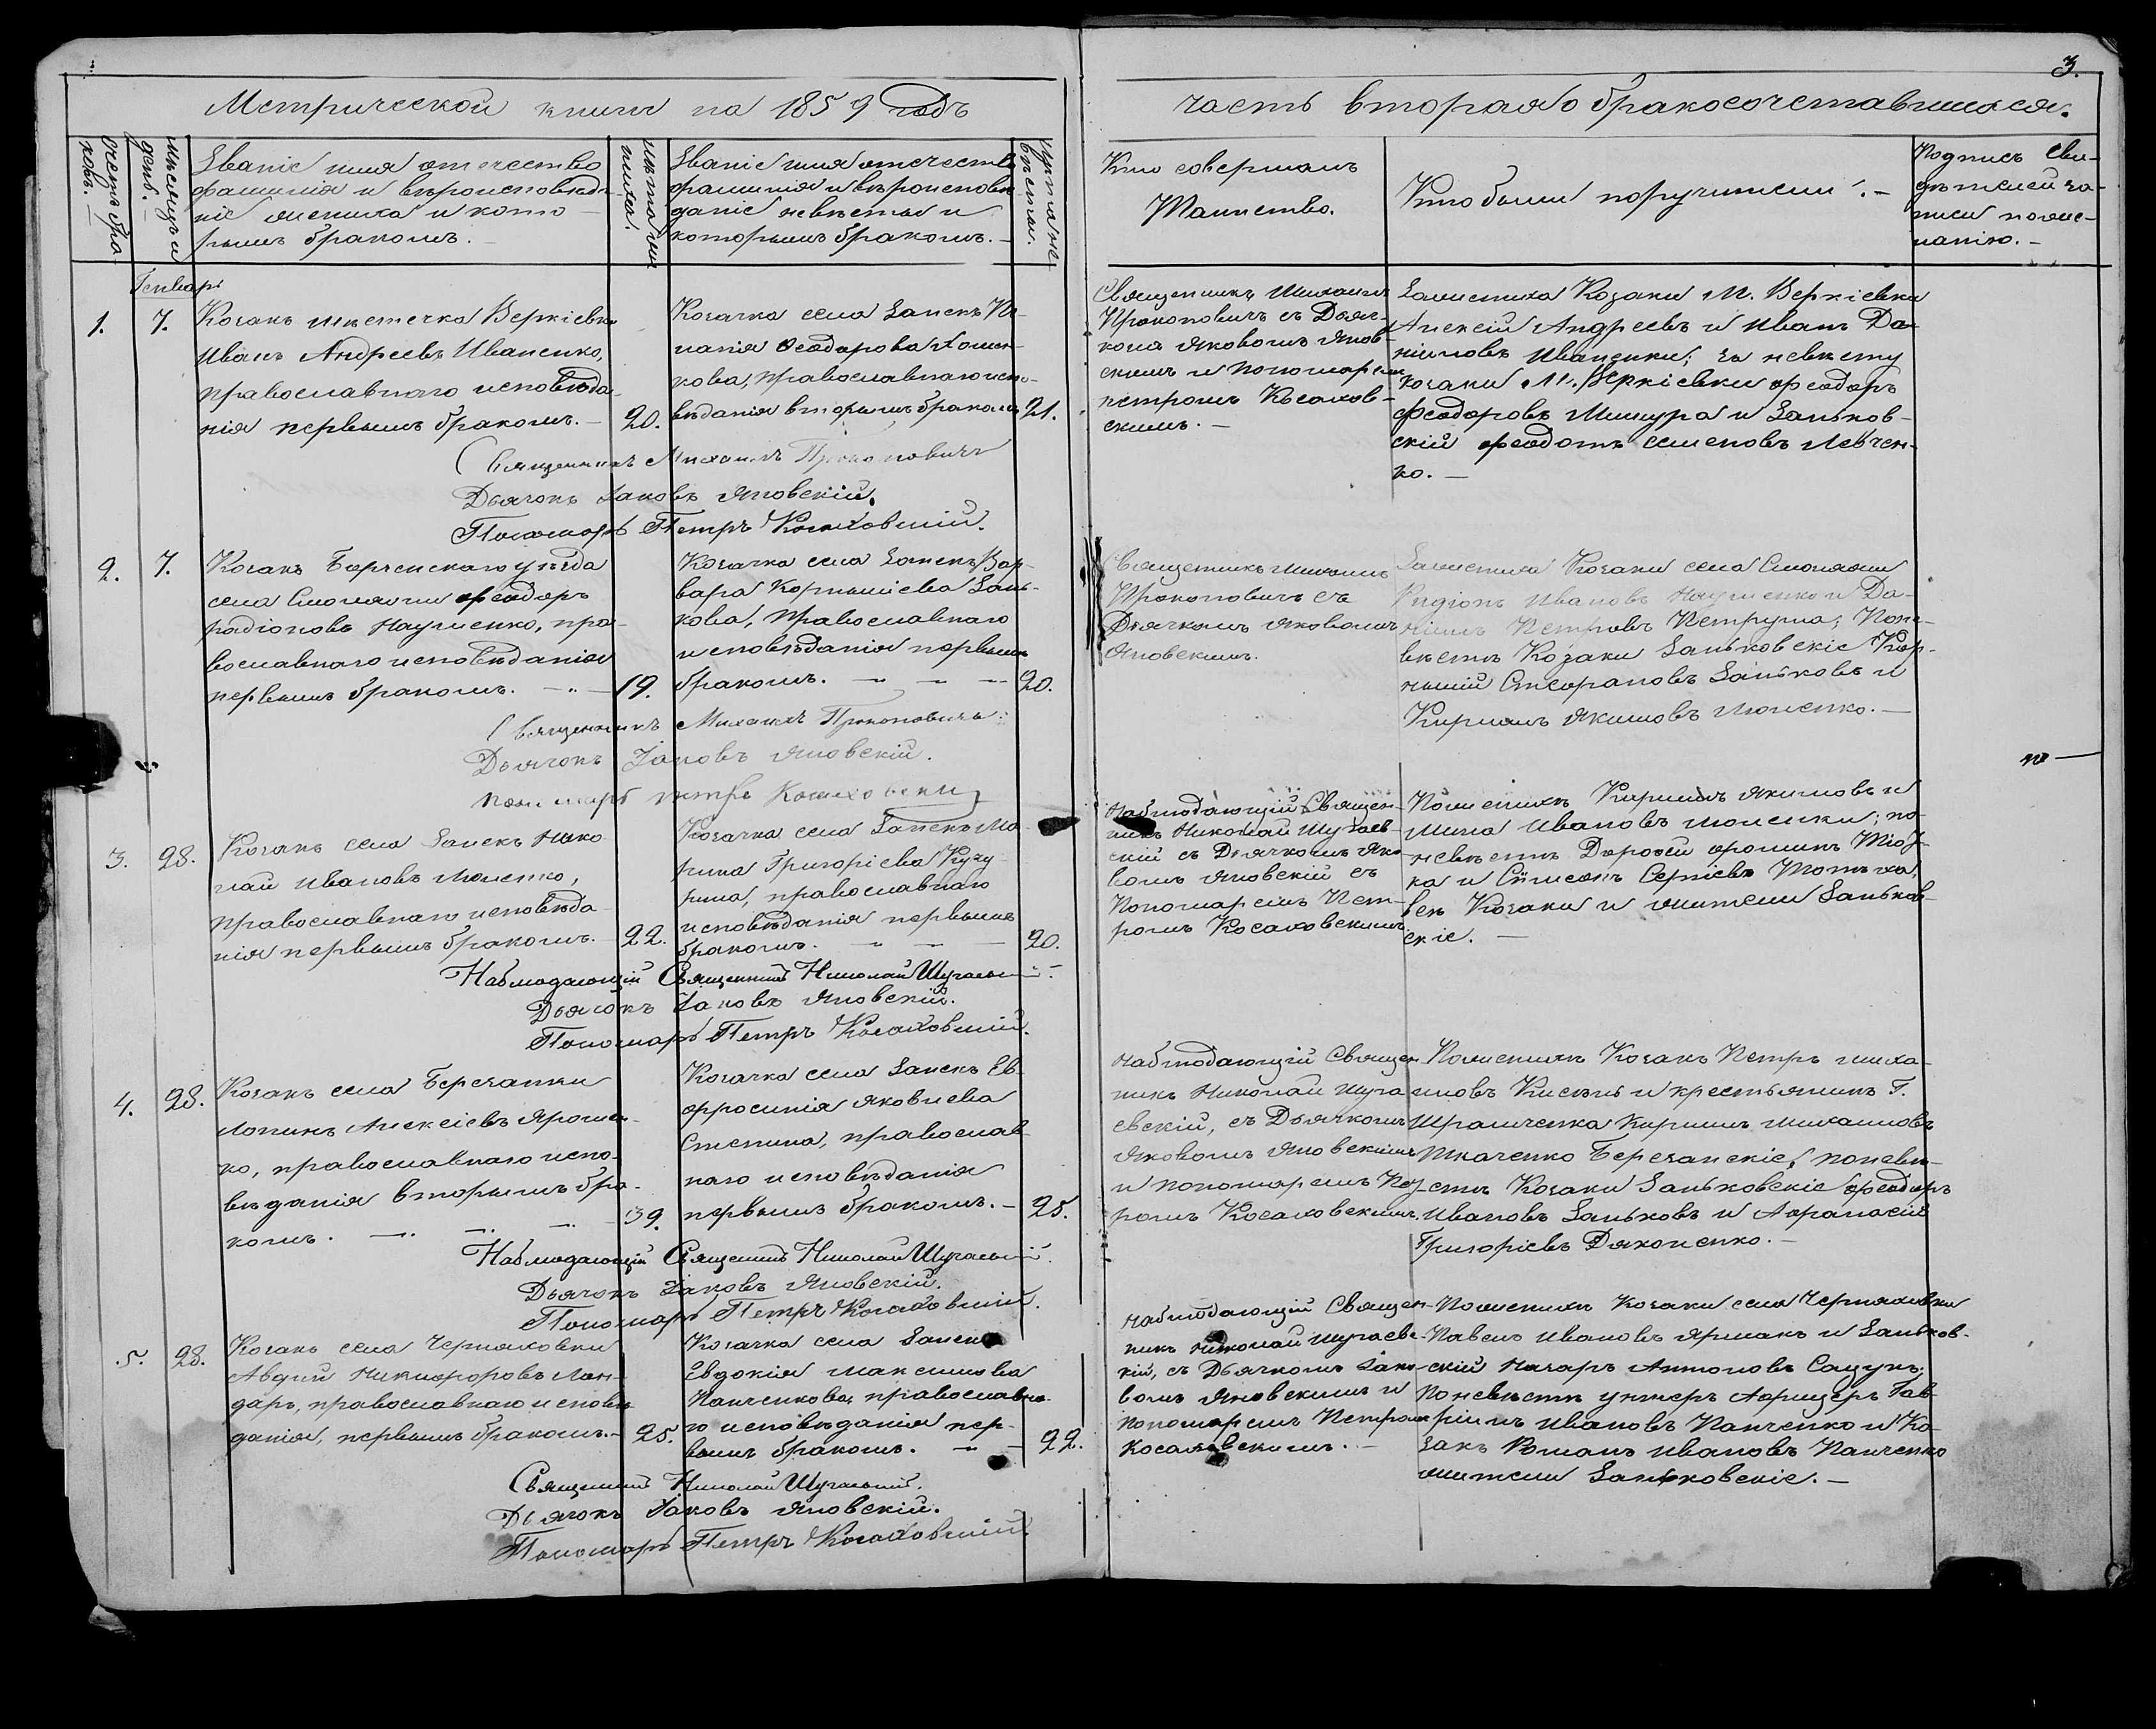 3.
Метрической книги на 1859 годъ
часть вторая о бракосочетавшихся.
Счетъ бра-
ковъ.
Мѣсяцъ и
день.
Званіе имя отчество
фамилія и вѣроисповѣда-
ніе жениха и кото-
рымъ бракомъ.
лѣта же-
ниха.
Званіе имя отчество
фамилія и вѣроисповѣ-
даніе невѣсты и
которымъ бракомъ.
лѣта не-
вѣсты.
Кто совершалъ
Таинство.
Кто были поручители.
Подпись сви-
дѣтелей за-
писи по же-
ланію.
Генварь
1.
7.
Козакъ мѣстечка Веркіевки
Иванъ Андреевъ Иваненко,
православнаго исповѣда-
нія первымъ бракомъ.
20.
Козачка села Занекъ
Феодорова
православнаго испо-
вѣданія вторымъ бракомъ
21.
Священникъ Михаилъ
Прокоповичъ съ Дьяч-
комъ Яковомъ Янов-
скимъ и пономаремъ
Петромъ Косахов-
скимъ.
За жениха Козаки М. Веркіевки
Алексій Андреевъ и Иванъ Да-
ніиловъ Иваненки; за невѣсту
козаки М. Веркіевки Феодоръ
Феодоровъ Мишура и Заньков-
скій Феодотъ Семеновъ Левчен-
ко.
Священникъ Михаилъ Прокоповичъ
Дьячокъ Іаковъ Яновскій.
Пономарь Петръ Косаховскій.
2.
7.
Козакъ Борзенскаго уѣзда
села Смоляжи Феодоръ
Радіоновъ Науменко, пра-
вославнаго исповѣданія
первымъ бракомъ.
19.
Козачка села Занекъ Вар-
вара Корнилиева Зань-
кова, православнаго
исповѣданія первымъ
бракомъ.
20.
Священникъ Михаилъ
Прокоповичъ съ
Дьячкомъ Яковомъ
Яновскимъ.
За жениха Козаки села Смоляжи
Родіонъ Ивановъ Науменко и Да-
ніилъ Петровъ Петруша; по не-
вѣстѣ Козаки Заньковскіе Кор-
нилій Стефановъ Заньковъ и
Кирилъ Якимовъ Моленко.
Священникъ Михаилъ Прокоповичъ
Дьячокъ Іаковъ Яновскій.
Пономарь Петръ Косаховскій
3.
28.
Козакъ села Занекъ Нико-
лай Ивановъ Моленко,
православнаго исповѣда-
нія первымъ бракомъ.
22.
Козачка села Занекъ Ма-
рина Григоріева
православнаго
исповѣданія первымъ
бракомъ.
20.
Наблюдающій Священ-
никъ Николай Шугаев-
скій съ Дьячкомъ Яко-
вомъ Яновскій съ
Пономаремъ Пет-
ромъ Косаховскимъ.
По женихѣ Кирилъ Якимовъ и
Мина Ивановъ Моленки; по
невѣстѣ Дорофей
и Симеонъ Сергіевъ
всѣ Козаки и жители Заньков-
скіе.
Наблюдающій Священникъ Николай Шугаевскій.
Дьячокъ Іаковъ Яновскій.
Пономарь Петръ Косаховскій.
4.
28.
Козакъ села Березанки
Логинъ Алексіевъ Ярошен-
ко, православнаго испо-
вѣданія вторымъ бра-
комъ.
39.
Козачка села Занекъ Ев-
фросинія Яковлева
Степина, православ-
наго исповѣданія
первымъ бракомъ.
25.
Наблюдающій Священ-
никъ Николай Шуга-
евскій, съ Дьячкомъ
Яковомъ Яновскимъ
и пономаремъ Пет-
ромъ Косаховскимъ.
По женихѣ Козакъ Петръ Миха-
иловъ Кисель и крестьянинъ Г.
Кирилъ Михаиловъ
Ткаченко Березанскіе, по невѣ-
стѣ Козаки Заньковскіе Феодоръ
Ивановъ Заньковъ и Афанасій
Григоріевъ Дяконенко.
Наблюдающій Священникъ Николай Шугаевскій.
Дьячокъ Іаковъ Яновскій.
Пономарь Петръ Косаховскій.
5.
28.
Козакъ села Черняховки
Авдій Никифоровъ Лон-
даръ, православнаго исповѣ-
данія, первымъ бракомъ.
25.
Козачка села Занекъ
Евдокія Максимова
Панченкова, православна-
го исповѣданія пер-
вымъ бракомъ.
22.
Наблюдающій Священ-
никъ Николай Шугаевс-
кій, съ Дьячкомъ Іако-
вомъ Яновскимъ и
пономаремъ Петромъ
Косаховскимъ.
По женихѣ Козаки села Черняховки
Павелъ Ивановъ Ярмакъ и Заньков-
скій Назаръ Антоновъ Сацукъ;
по невѣстѣ унтеръ Афицеръ Гав-
ріилъ Ивановъ Панченко и Ко-
закъ Романъ Ивановъ Панченко
жители Заньковскіе.
Священникъ Николай Шугаевскій.
Дьячокъ Іаковъ Яновскій.
Пономарь Петръ Косаховскій.